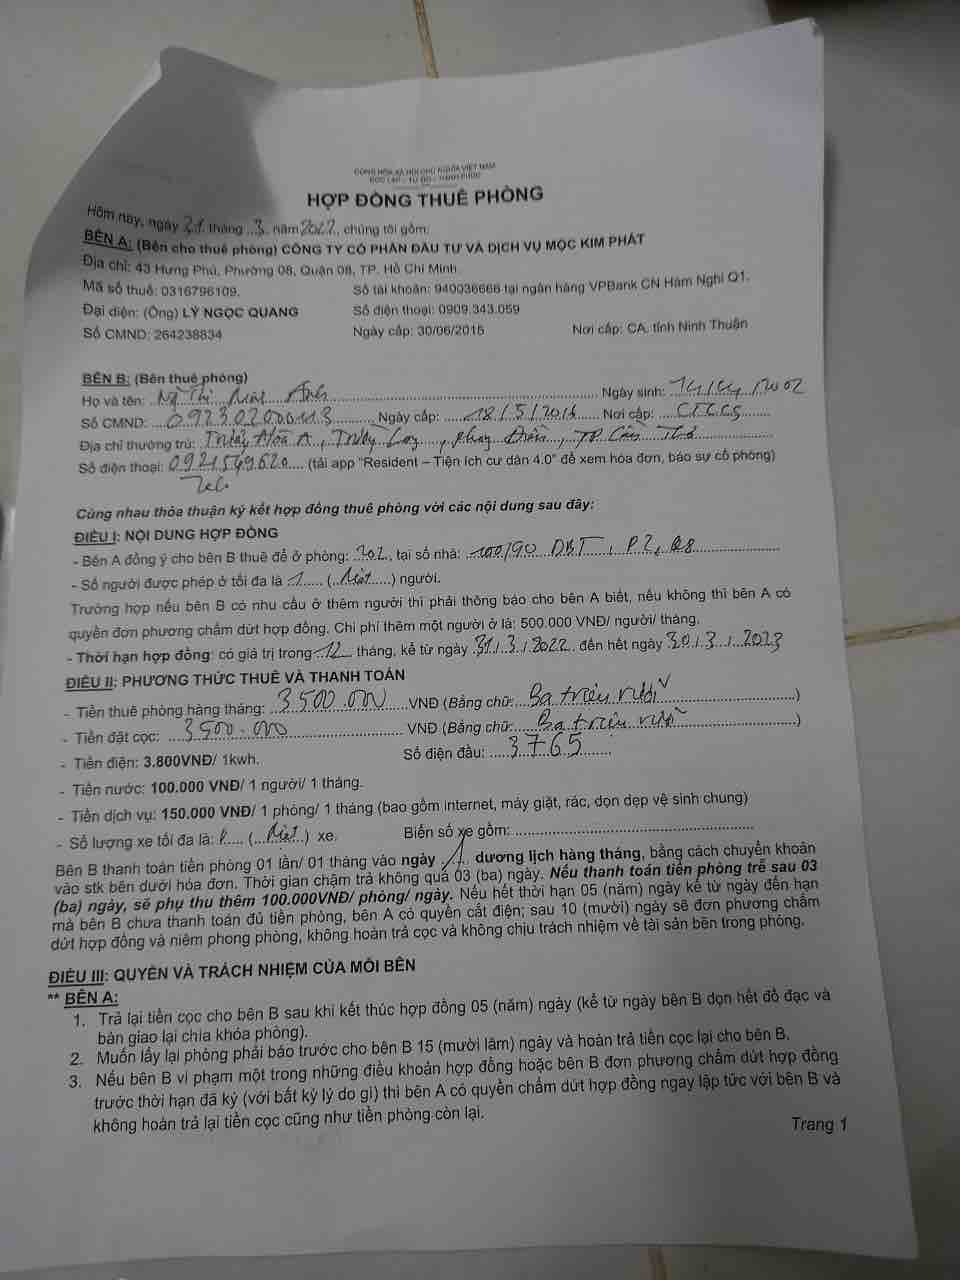 CỘNG HÒA XÃ HỘI CHỦ NGHĨA VIỆT NAM
ĐỘC LẬP - TỰ DO - HẠNH PHÚC
HỢP ĐỒNG THUÊ PHÒNG
Hôm nay, ngày 21 tháng 3 năm 2022, chúng tôi gồm:
BÊN A: (Bên cho thuê phòng) CÔNG TY CỔ PHẦN ĐẦU TƯ VÀ DỊCH VỤ MỘC KIM PHÁT
Địa chỉ: 43 Hưng Phú, Phường 08, Quận 08, TP. Hồ Chí Minh.
Mã số thuế: 0316796109. Số tài khoản: 940036666 tại ngân hàng VPBank CN Hàm Nghi Q1.
Đại diện: (Ông) LÝ NGỌC QUANG Số điện thoại: 0909.343.059
Số CMND: 264238834 Ngày cấp: 30/06/2015 Nơi cấp: CA. tỉnh Ninh Thuận
BÊN B: (Bên thuê phòng)
Họ và tên: Thị Anh Ngày sinh: 14/04/2002
Số CMND: Ngày cấp: 18/5/2016 Nơi cấp:
Địa chỉ thường trú: A, TP Cần Thơ
Số điện thoại: 0921549620 (tải app "Resident – Tiện ích cư dân 4.0" để xem hóa đơn, báo sự cố phòng)
Zalo
Cùng nhau thỏa thuận ký kết hợp đồng thuê phòng với các nội dung sau đây:
ĐIỀU I: NỘI DUNG HỢP ĐỒNG
- Bên A đồng ý cho bên B thuê để ở phòng: 202, tại số nhà: 100/90 DBT, P2, Q8
- Số người được phép ở tối đa là 1 (Một) người.
Trường hợp nếu bên B có nhu cầu ở thêm người thì phải thông báo cho bên A biết, nếu không thì bên A có
quyền đơn phương chấm dứt hợp đồng. Chi phí thêm một người ở là: 500.000 VNĐ/ người/ tháng.
- Thời hạn hợp đồng: có giá trị trong 12 tháng, kể từ ngày 31/3/2022 đến hết ngày 30/3/2023
ĐIỀU II: PHƯƠNG THỨC THUÊ VÀ THANH TOÁN
- Tiền thuê phòng hàng tháng: 3500.000 VNĐ (Bằng chữ: Ba triệu rưỡi)
- Tiền đặt cọc: 3500.000 VNĐ (Bằng chữ: Ba triệu rưỡi)
- Tiền điện: 3.800VNĐ/ 1kwh. Số điện đầu: 3765
- Tiền nước: 100.000 VNĐ/ 1 người/ 1 tháng.
- Tiền dịch vụ: 150.000 VNĐ/ 1 phòng/ 1 tháng (bao gồm internet, máy giặt, rác, dọn dẹp vệ sinh chung)
- Số lượng xe tối đa là: 1 (Một) xe. Biển số xe gồm:
Bên B thanh toán tiền phòng 01 lần/ 01 tháng vào ngày 1 dương lịch hàng tháng, bằng cách chuyển khoản
vào stk bên dưới hóa đơn. Thời gian chậm trả không quá 03 (ba) ngày. Nếu thanh toán tiền phòng trễ sau 03
(ba) ngày, sẽ phụ thu thêm 100.000VNĐ/ phòng/ ngày. Nếu hết thời hạn 05 (năm) ngày kể từ ngày đến hạn
mà bên B chưa thanh toán đủ tiền phòng, bên A có quyền cắt điện; sau 10 (mười) ngày sẽ đơn phương chấm
dứt hợp đồng và niêm phong phòng, không hoàn trả cọc và không chịu trách nhiệm về tài sản bên trong phòng.
ĐIỀU III: QUYỀN VÀ TRÁCH NHIỆM CỦA MỖI BÊN
** BÊN A:
1. Trả lại tiền cọc cho bên B sau khi kết thúc hợp đồng 05 (năm) ngày (kể từ ngày bên B dọn hết đồ đạc và
bàn giao lại chìa khóa phòng).
2. Muốn lấy lại phòng phải báo trước cho bên B 15 (mười lăm) ngày và hoàn trả tiền cọc lại cho bên B.
3. Nếu bên B vi phạm một trong những điều khoản hợp đồng hoặc bên B đơn phương chấm dứt hợp đồng
trước thời hạn đã ký (với bất kỳ lý do gì) thì bên A có quyền chấm dứt hợp đồng ngay lập tức với bên B và
không hoàn trả lại tiền cọc cũng như tiền phòng còn lại.
Trang 1